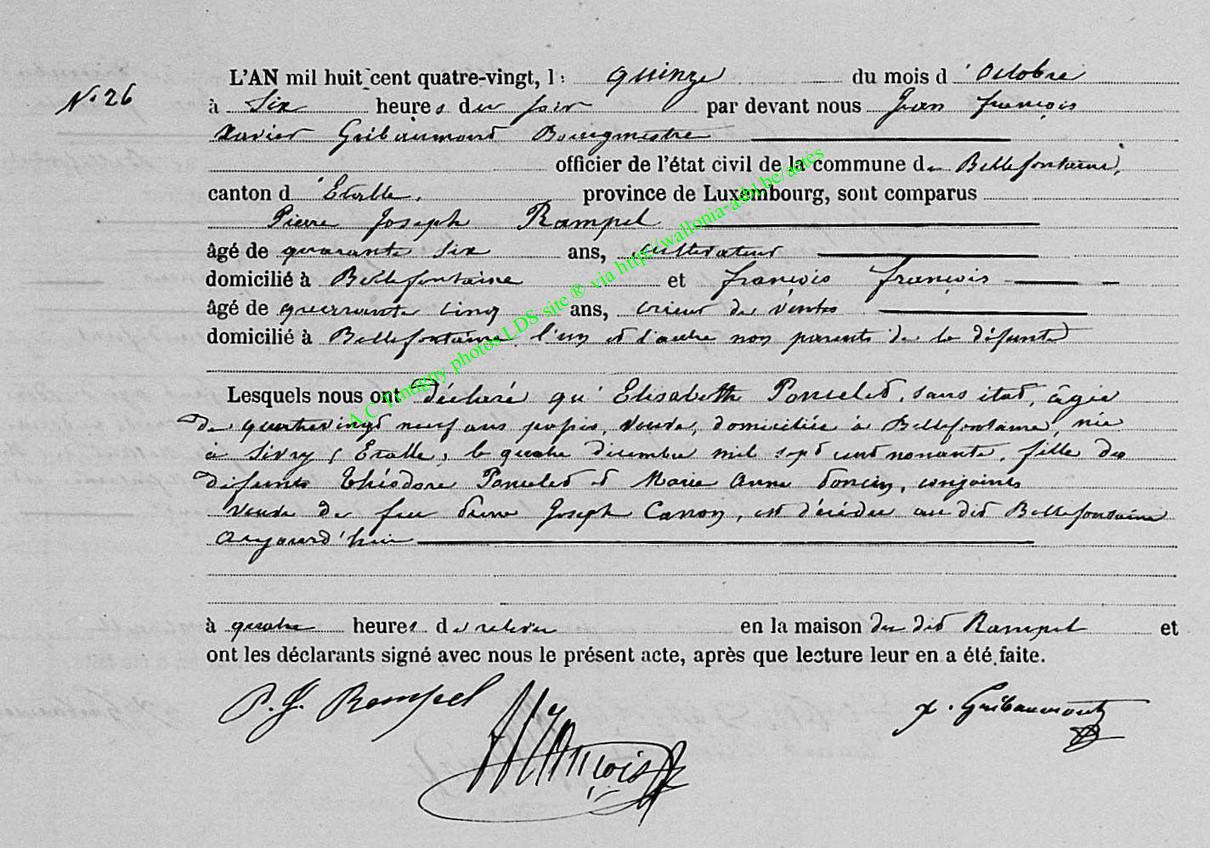 L'AN mil huit cent quatre-vingt, l: quinze du mois d'Octobre
N° 26
à Six heures du soir par devant nous Jean François
Xavier Gribaumont Bourgmestre
officier de l'état civil de la commune de Bellefontaine,
canton d'Étalle, province de Luxembourg, sont comparus
Pierre Joseph Rampel
âgé de quarante six ans, cultivateur
domicilié à Bellefontaine et françois françois
âgé de quarante cinq ans, crieur de ventes
domicilié à Bellefontaine, l'un et l'autre non parents de la défunte
Lesquels nous ont déclaré qu'Elisabeth Poncelet, sans état, âgée
de quatrevingt neuf ans passés, veuve, domiciliée à Bellefontaine, née
à Sivry (Etalle, le quatre décembre mil sept cent nonante, fille des
défunts Théodore Poncelet et Marie Anne conjoints
veuve de feu Joseph Canon, est décédée au dit Bellefontaine
aujourd'hui
à quatre heures de relevée en la maison du dit Rampel et
ont les déclarants signé avec nous le présent acte, après que lecture leur en a été faite.
P. J. Rampel
François
X. Gribaumont
A.C. photos LDS site ® via http://wallonia-asbl.be/actes